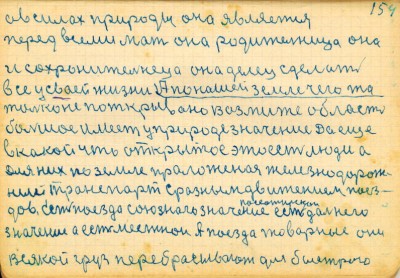 159
о всилах природы она является
перед всеми мат она родитеница она
и сохронителнеца она делец сделат
все у сваей жизни А по нашей земле чего та
толко не поткривано возмите област
болшое имеет у природе значение Да еще
в какой чть открытое это ест люди а
для них по земле праложеная железнодорож-
ние транспарт сразным движением поез-
дов, ест поезда союзнаго значение
пасотирския
ест далнего
значение а ест местнои А поезда товарные они
всякой груз перебрасывают для быстрого